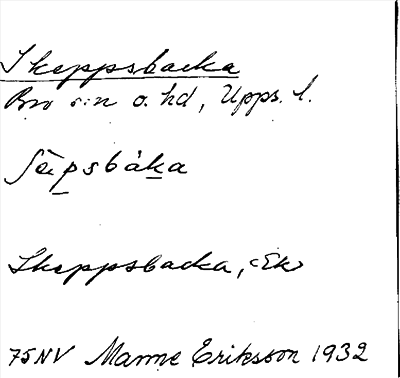 Skeppsbacka
Bro sn o. hd, Upps. l.
ʃèpsbàka
Skeppsbacka, Ek
75NV Manne Eriksson 1932